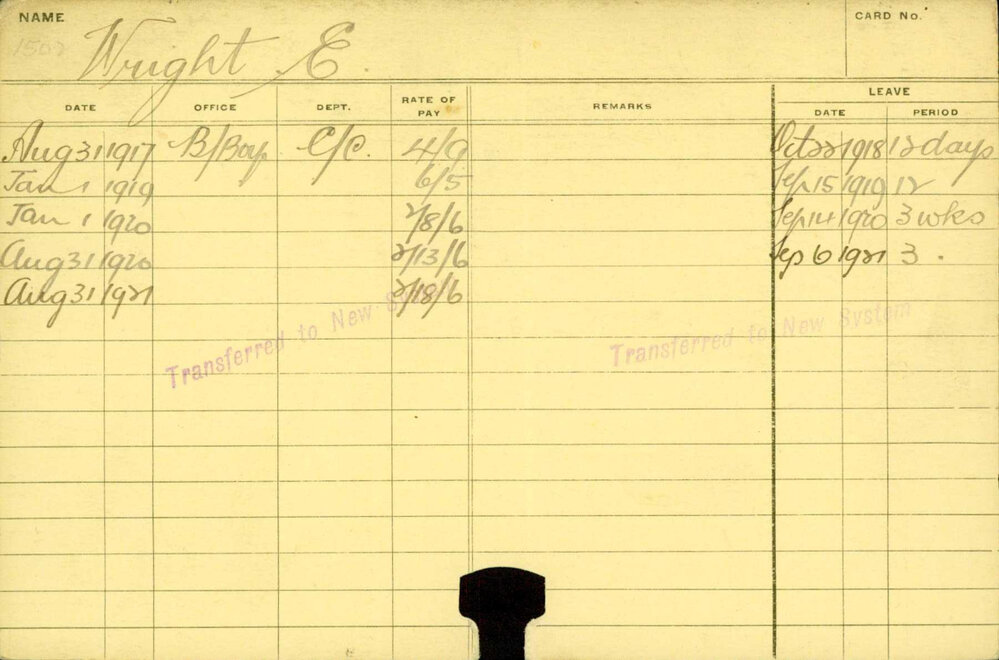 NAME
CARD No.
1507
Wright E.
LEAVE
DATE OFFICE DEPT. RATE OF PAY REMARKS DATE PERIOD
Aug 31 1917 B/Boy C/C. 4/9 Oct 22 1918 12 days
Jan 1 1919 6/5 Sep 15 1919 12
Jan 1 1920 2/8/6 Sep 14 1920 3 wks
Aug 31 1920 2/13/6 Sep 6 1921 3 .
Aug 31 1921 2/18/6
Transferred to New System
Transferred to New System